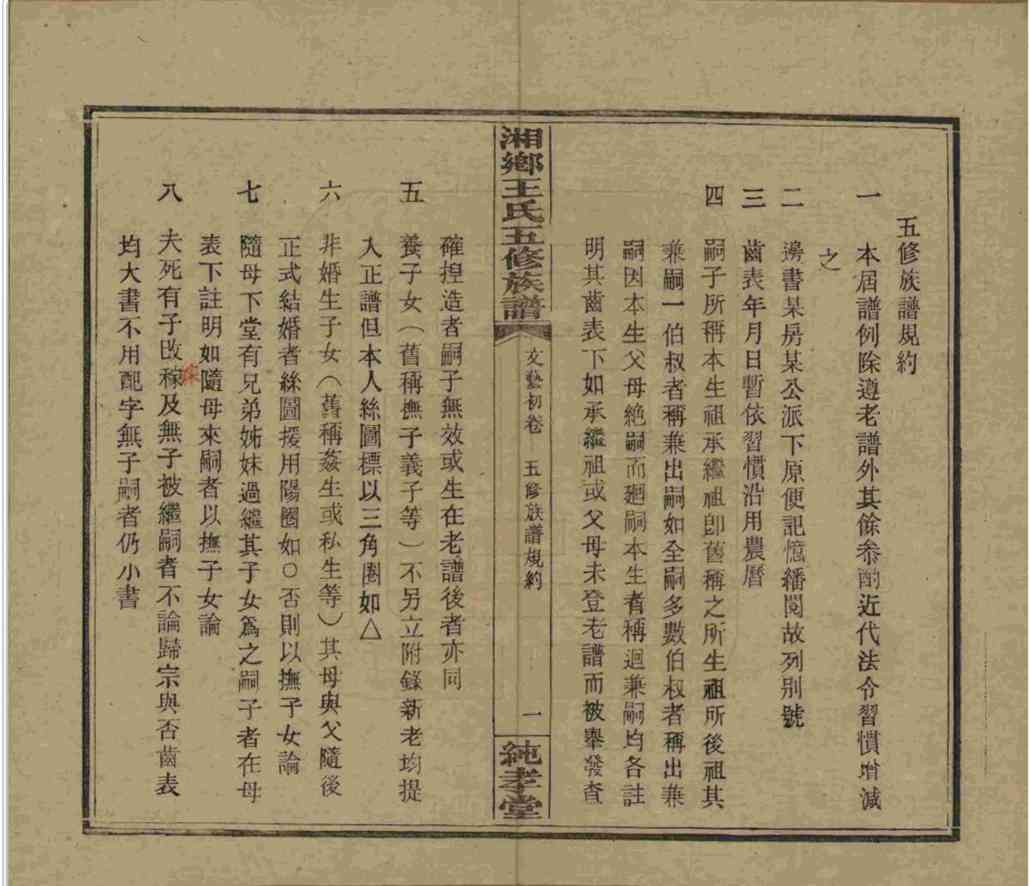 五修族譜規約
一　本屆譜例除遵老譜外其餘叅酌近代法令習慣增減
之
二　邊書某房某公派下原便記憶繙閱故列別號
三　齒表年月日暫依習慣沿用農曆
四　嗣子所稱本生祖承繼祖卽舊稱之所生祖所後祖其
兼嗣一伯叔者稱兼出嗣如全嗣多數伯叔者稱出兼
嗣因本生父母絶嗣而廻嗣本生者稱迴兼嗣均各註
明其齒表下如承繼祖或父母未登老譜而被舉發查
湘鄉王氏五修族譜
文藝初卷　五修族譜規約
一
純孝堂
確揑造者嗣子無效或生在老譜後者亦同
五　養子女（舊稱撫子義子等）不另立附錄新老均提
入正譜但本人絲圖標以三角圈如△
六　非婚生子女（舊稱姦生或私生等）其母與父隨後
正式結婚者絲圖援用陽圈如○否則以撫子女論
七　隨母下堂有兄弟姊妹過繼其子女爲之嗣子者在母
表下註明如隨母來嗣者以撫子女論
八　夫死有子改稼及無子被繼嗣者不論歸宗與否齒表
嫁
均大書不用配字無子嗣者仍小書